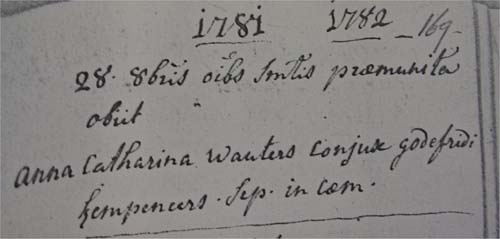 1781 1782 169.
28. 8bris oibs Smtis præmunita
obiit
Anna Catharina Wauters conjux godefridi
Kempeneers. Sep. in cœm.